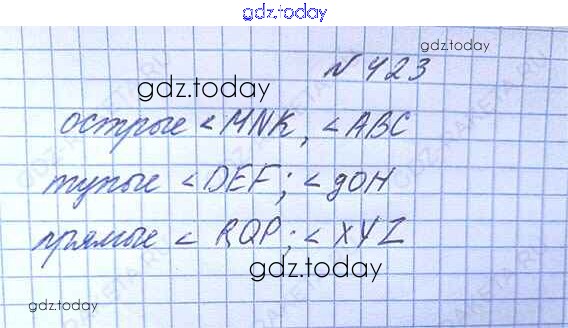 gdz.today
№ 423
gdz.today
gdz.today
острые <MNK, <ABC
тупые <DEF; <дОН
прямые < RQP; <XYZ
gdz.today
gdz.today